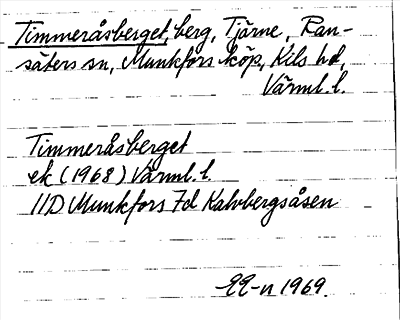 Timmeråsberget, berg, Tjärne, Ran-
säters sn, Munkfors köp, Kils hd,
Värml. l.
Timmeråsberget
ek (1968) Värml. l.
11D Munkfors 7d Kalvbergsåsen
1969.